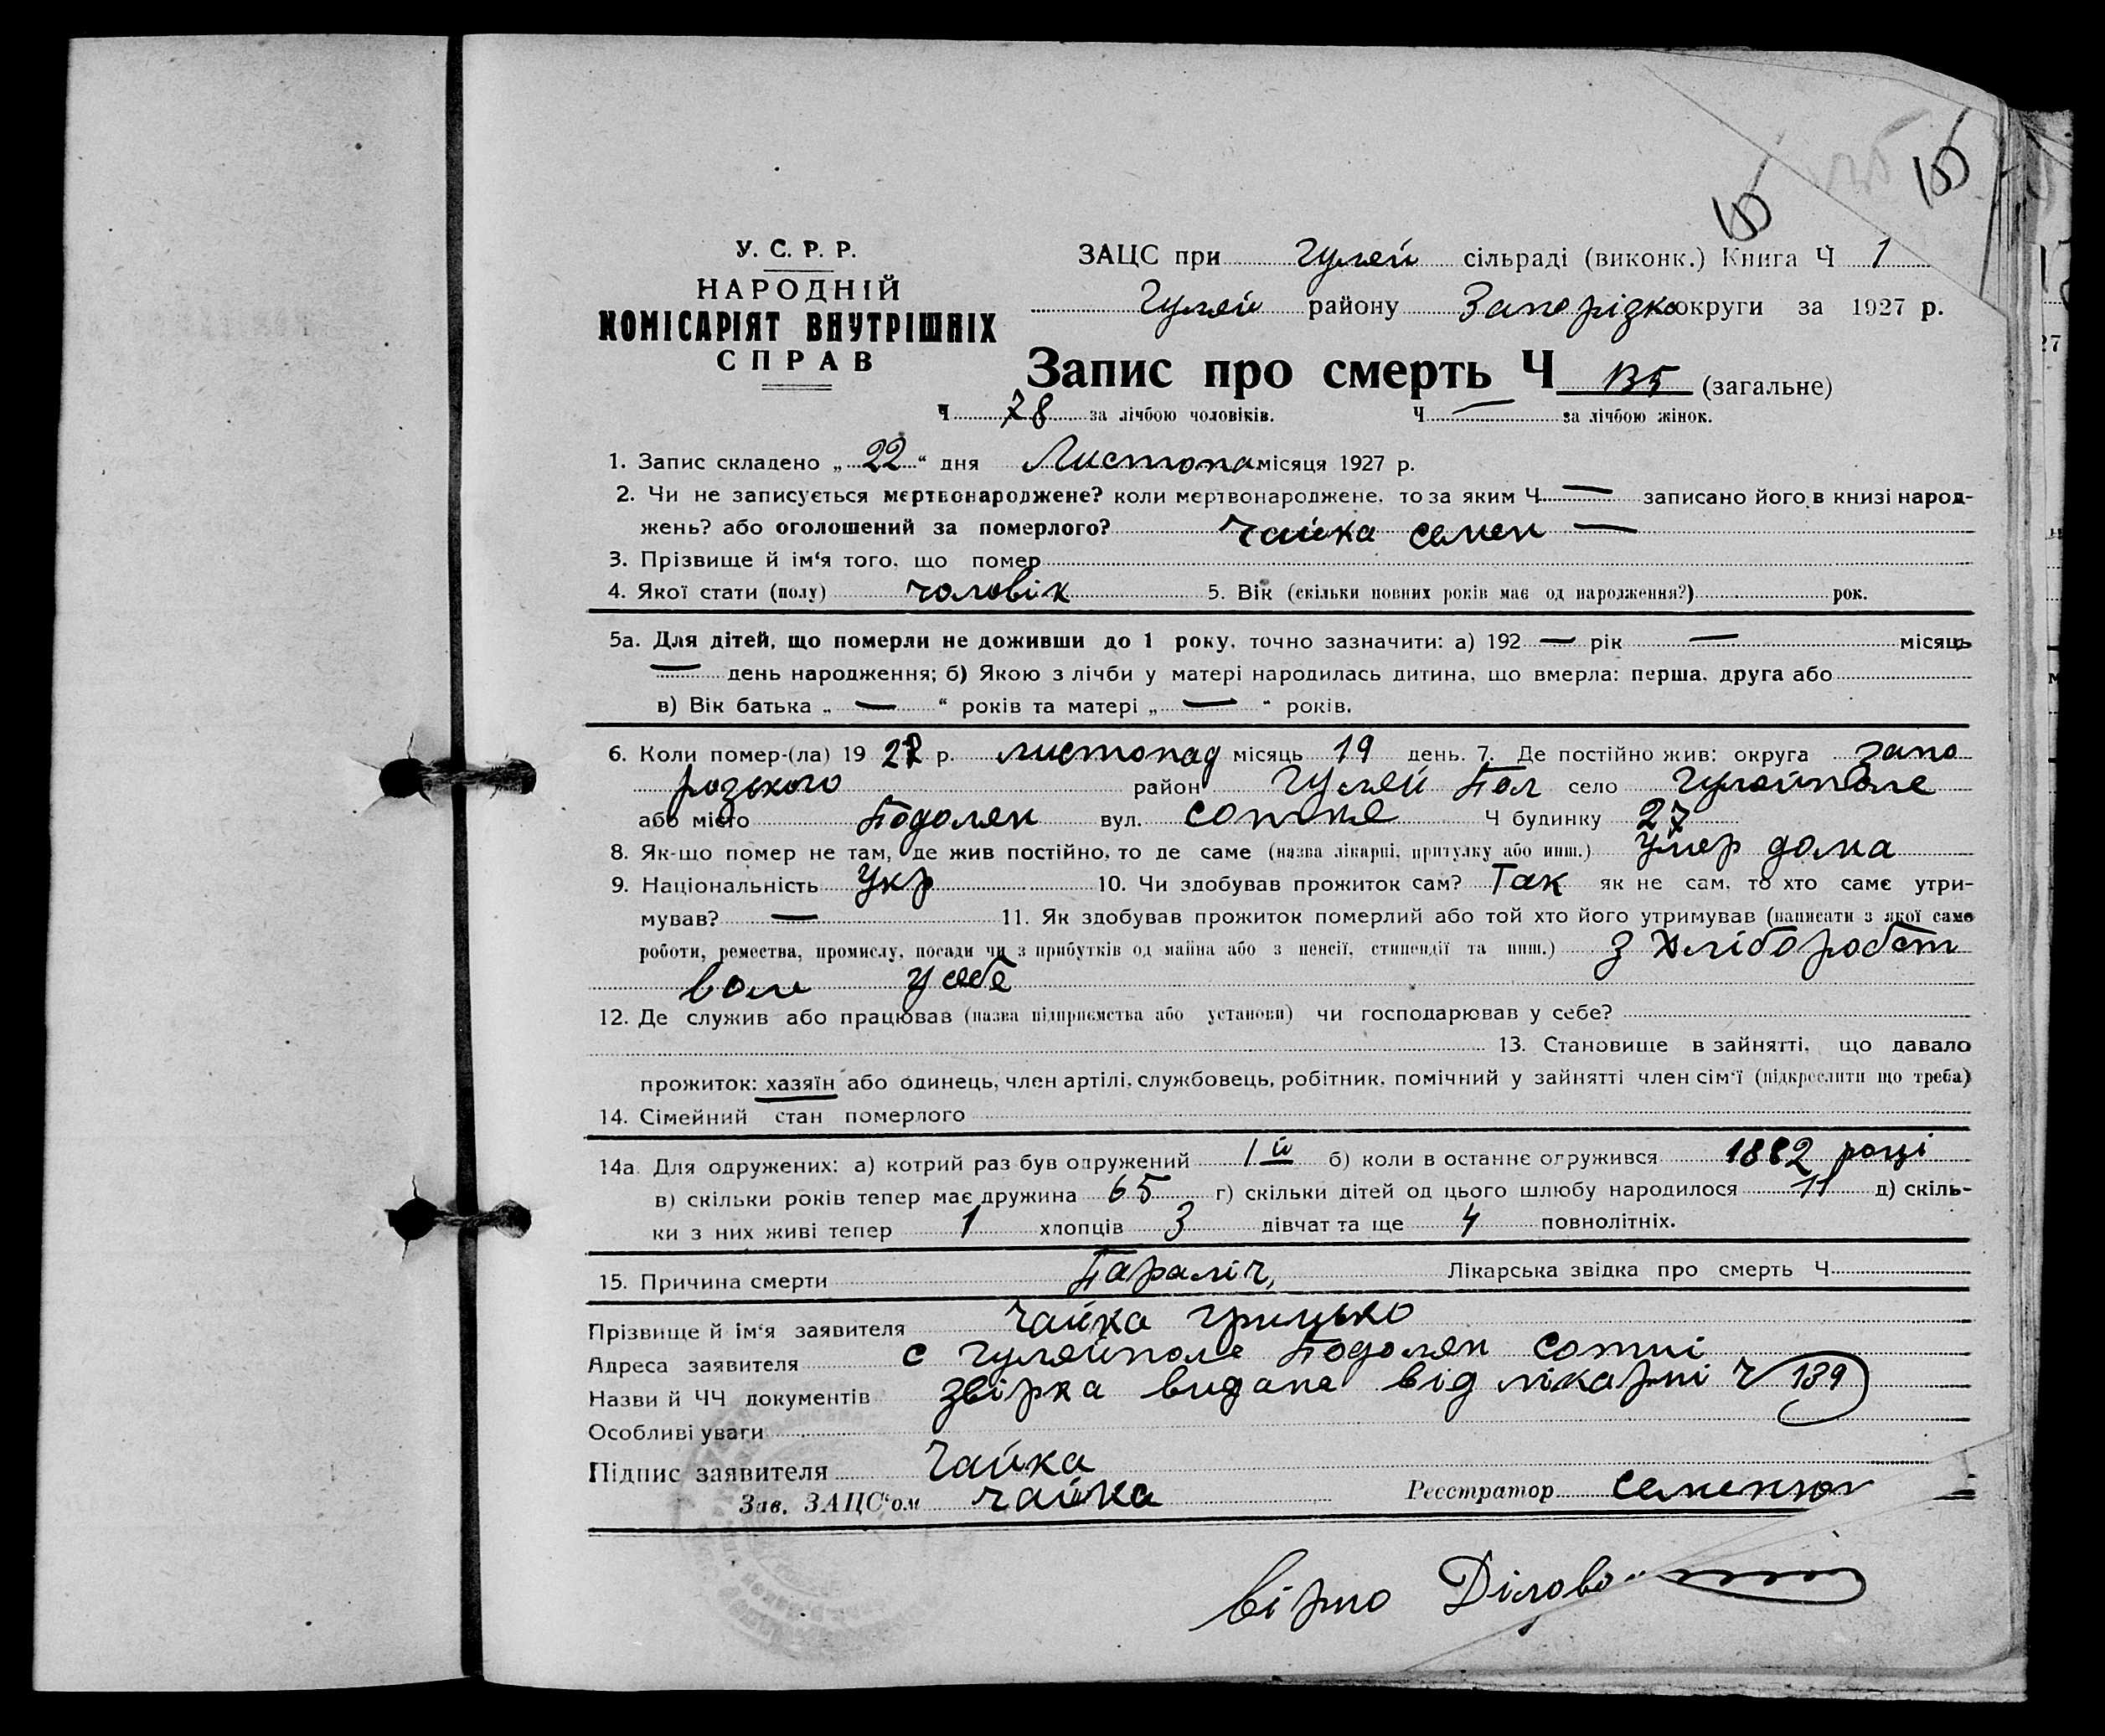 15
15
У. С. Р. Р.
НАРОДНІЙ
КОМІСАРІЯТ ВНУТРІШНІХ
СПРАВ
ЗАЦС при Гуляй сільраді (виконк.) Книга Ч 1
Гуляй району Запорізко округи за 1927 р.
Запис про смерть Ч 135 (загальне)
Ч 78 за лічбою чоловіків. Ч — за лічбою жінок.
1. Запис складено „ 22 “ дня Листопа місяця 1927 р.
2. Чи не записується мертвонароджене? коли мертвонароджене, то за яким Ч — записано його в книзі народ-
жень? або оголошений за померлого? Чайка Семен —
3. Прізвище й ім‘я того, що помер
4. Якої стати (полу) чоловік 5. Вік (скільки повних років має од народження?) рок.
5а. Для дітей, що померли не доживши до 1 року, точно зазначити: а) 192 — рік — місяць
— день народження; б) Якою з лічби у матері народилась дитина, що вмерла: перша, друга або
в) Вік батька „ — “ років та матері „ — “ років.
6. Коли помер-(ла) 19 27 р. листопад місяць 19 день. 7. Де постійно жив: округа Запо
різького район Гуляй Пол село Гуляйполе
або місто Подолян вул. сотне Ч будинку 27
8. Як-що помер не там, де жив постійно, то де саме (назва лікарні, притулку або инш.) умер дома
9. Національність Укр 10. Чи здобував прожиток сам? Так як не сам, то хто саме утри-
мував? — 11. Як здобував прожиток померлий або той хто його утримував (написати з якої саме
роботи, ремества, промислу, посади чи з прибутків од майна або з пенсії, стипендії та инш.) з Хлібороб
у себе
12. Де служив або працював (назва підприємства або установи) чи господарював у себе?
13. Становище в зайнятті, що давало
прожиток: хазяїн або одинець, член артілі, службовець, робітник, помічний у зайнятті член сім‘ї (підкреслити що треба)
14. Сімейний стан померлого
14а. Для одружених: а) котрий раз був одружений 1й б) коли в останнє одружився 1882 році
в) скільки років тепер має дружина 65 г) скільки дітей од цього шлюбу народилося 11 д) скіль-
ки з них живі тепер 1 хлопців 3 дівчат та ще 4 повнолітніх.
15. Причина смерти Параліч, Лікарська звідка про смерть Ч
Прізвище й ім‘я заявителя Чайка Грицько
Адреса заявителя с Гуляйполе Подолян сотні
Назви й ЧЧ документів звірка видана від лікарні Ч 139
Особливі уваги
Підпис заявителя Чайка
Зав. ЗАЦС‘ом Чайка Реєстратор
Вірно Ділово